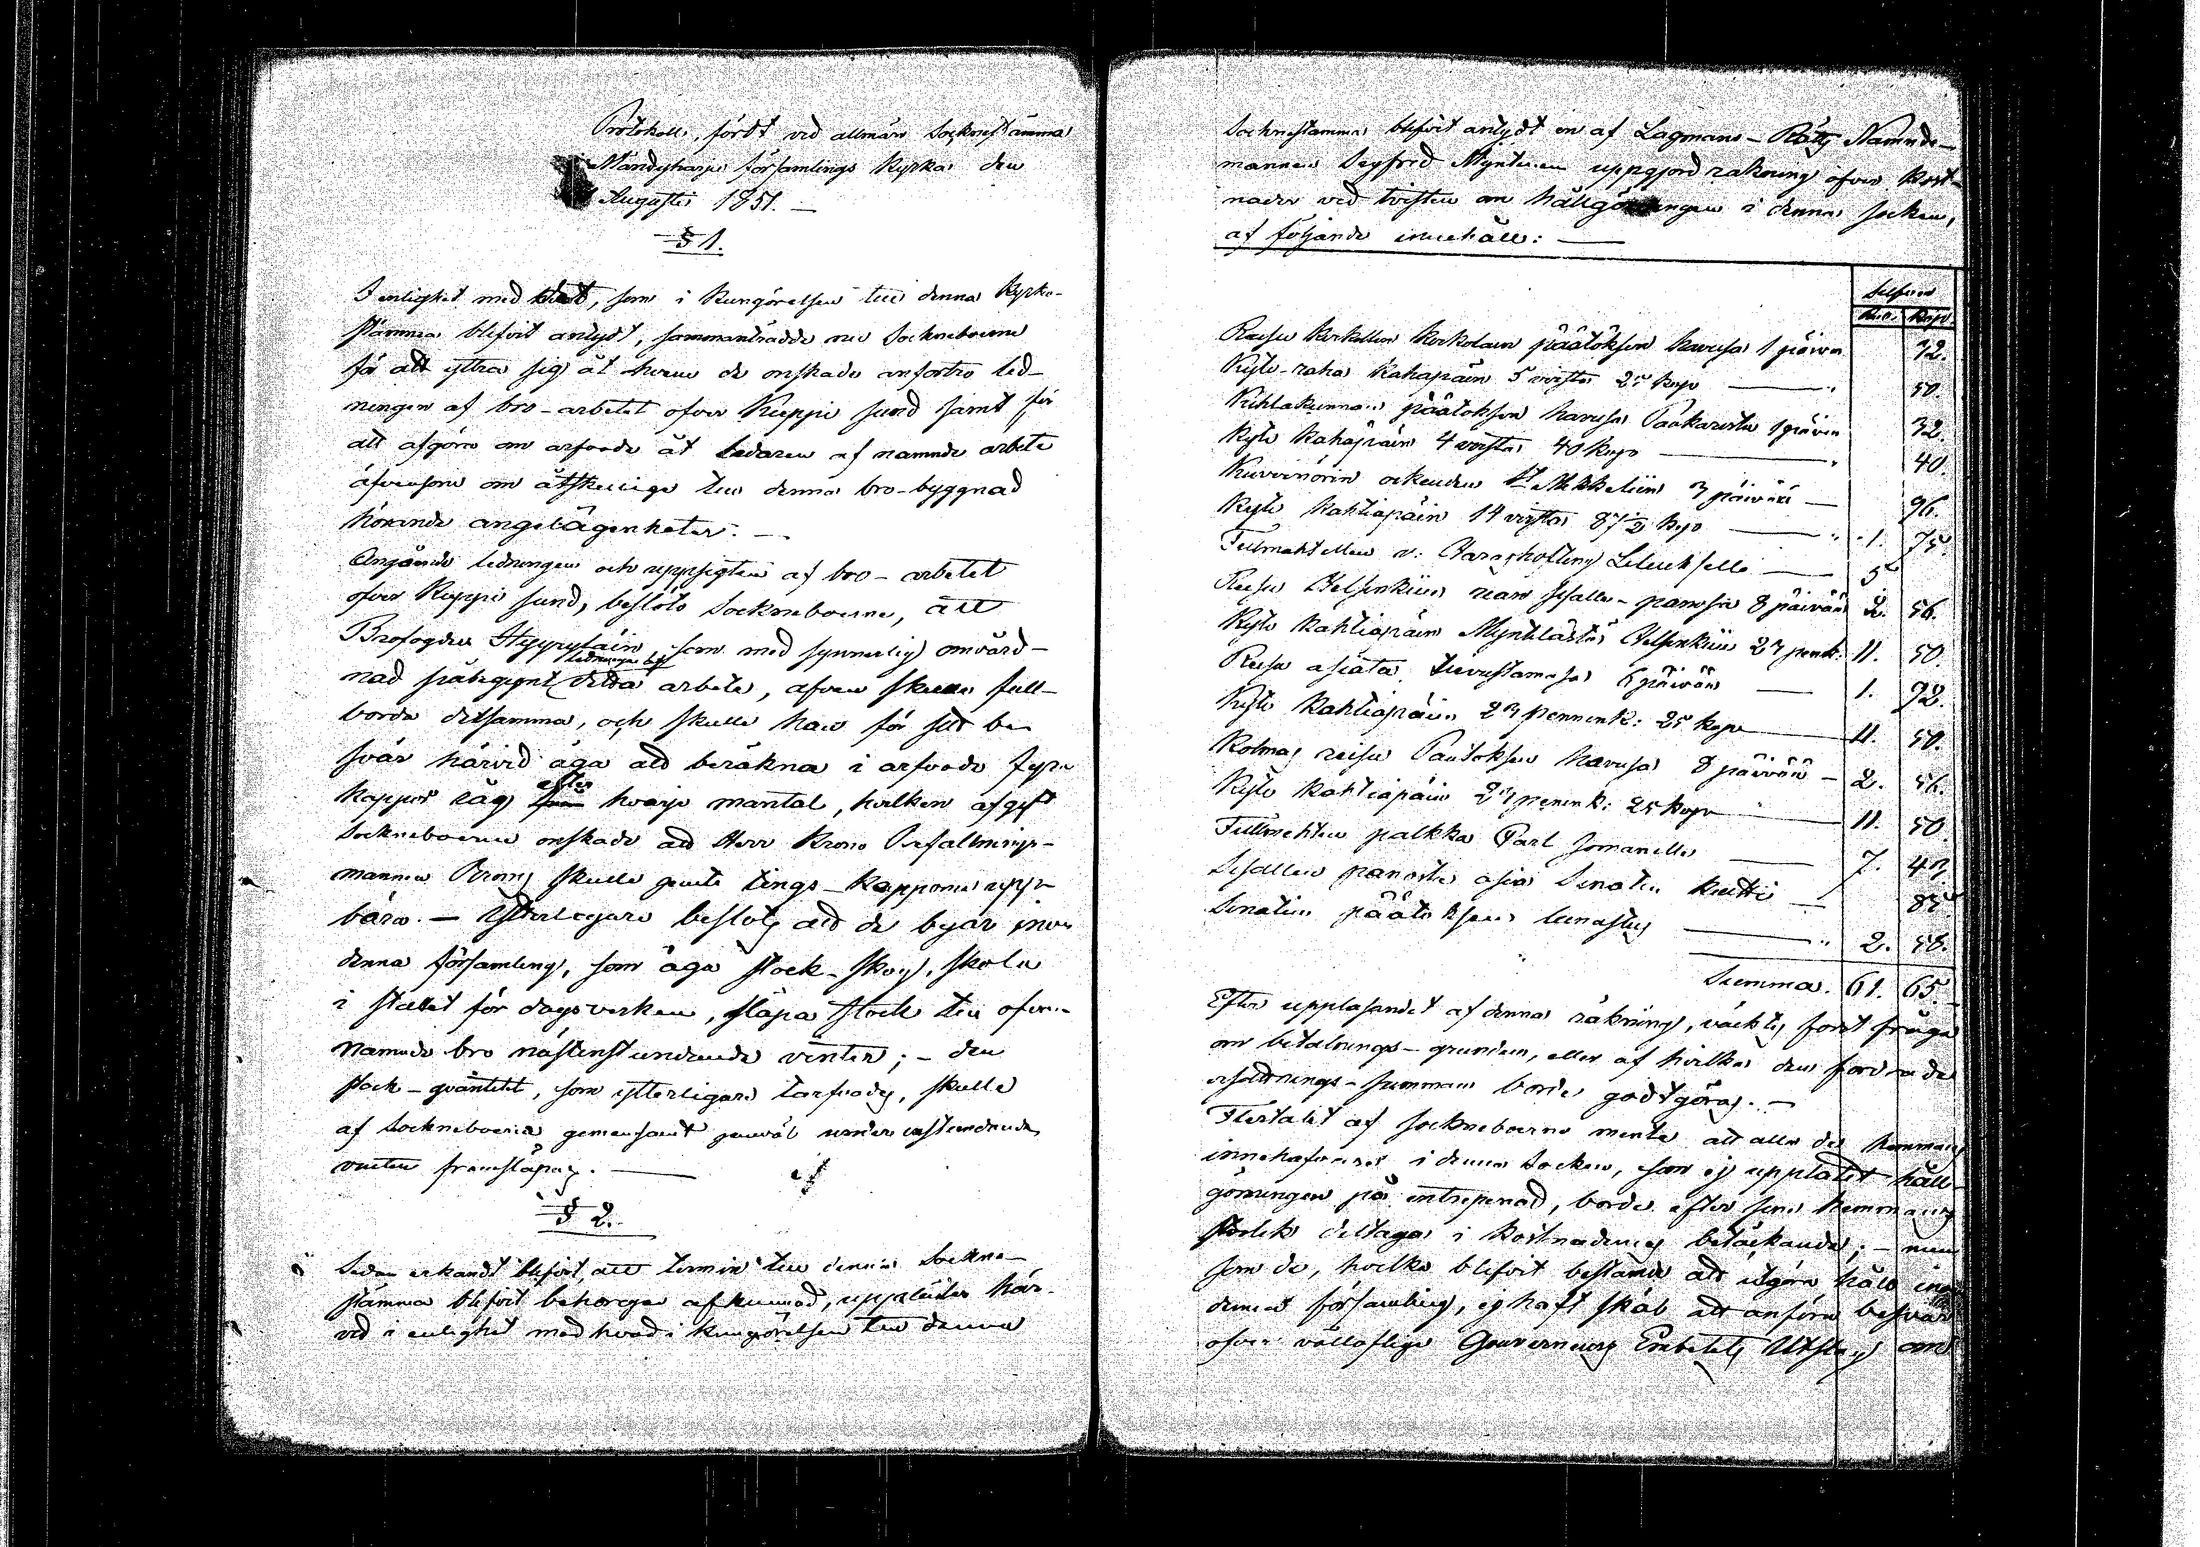 Protokoll, fördt vid allmän Sockne stämma
Mändyharju församlings Kyrka den
Augusti 1851. —
§ 1.
I enlighet med hvad, som i Kungörelsen till denna Kyrko-
stämma blifvit antydt, sammanträdde nu Sockneboerne
för att yttra sig åt hvem de önskade anförtro led-
ningen af bro-arbetet öfver Kuppi sund samt för
att afgöra om arfvode åt ledaren af nämnde arbete
äfvensom om åtskilliga till denna bro-byggnad
hörande angelägenheter. —
Angående ledningen och uppsigten af bro-arbetet
öfver Kuppi sund, beslöto Sockneboerne, att
Brofogden som med synnerlig omvård-
nad påbegynt ledningen af detta arbete, äfven skulle full-
borda detsamma, och skulle han för sitt be-
svär härvid äga att beräkna i arfvode fyra
kappor råg efter hvarje mantal, hvilken afgift
Sockneboerne önskade att Herr Krono Befallnings-
mannen skulle jemte tings-kapporna upp-
bära. — Ytterligare beslöts att de byar inom
denna församling, som äga stock-skog, skola
i stället för dagsverken, släpa stock till ofvan-
nämnde bro nästinstundande vinter; — den
stock-qvantitet, som ytterligare tarfvades, skulle
af Sockneboerne gemensamt jemväl under instundande
vinter framsläpas. —
§ 2.
Sedan erkändt blifvit, att termin till denna Sockne-
stämma blifvit behörigen afkunnad, upplästes här-
vid i enlighet med hvad i Kungörelsen till denna
Socknestämma blifvit antydt en af Lagmans-Rätts Nämnde-
mannen Segfred Myntinen uppgjord räkning öfver kost-
nader vid tvisten om hållgörningen i denna socken,
af följande innehåll: —
Silfver
Rub. Kop.
Reisu Kerkollen Koskolain päätöksen havusa 1 päivä 32.
Kyti-raha kahapäin 5 virsta 25 kop — " 50.
Kihlakunnan päätöksen havusa 1 päivä 32.
Kyti kahapäin 4 virsta 40 kop — " 40.
Kuvernörin oikeuden Mikkeliin 3 päivää — 96.
Kyti kahtiapäin 14 virsta 87½ kop — " 1. 75.
Fullmahtillen v. Häradshöfding — 5
Reisu Helsinkiin sisalle-panosa 8 päivää 2. 56.
Kyti kahtiapäin Helsinkiin 23 penik: 11. 50.
Reisu asiata 6 päivää — 1. 92.
Kyti kahtiapäin 23 pennink: 25 kop — 11. 50.
Kolmas reisu Päätöksen havusa 8 päivää — 2. 56.
Kyti kahtiapäin 23 penink: 25 kop " 11. 50.
Fullmahtin palkka Carl — 7. 43
Sisallen panosta asia Senatin — 85
Senatin päätöksen lunastus — " 2. 58.
Summa. 61. 65.
Efter uppläsandet af denna räkning, väcktes först fråga
om betalnings-grunden, eller af hvilka den fordrade
ersättnings-summan borde godtgöras. —
Flertalet af sockneboerne mente att alla de hemmans
innehafvarne i denna Socken, som ej upplåtit håll-
görningen på entreprenad, borde efter sina hemmans
storlek deltaga i kostnadens betäckande; — men
som de, hvilka blifvit bestämde att utgöra håll inom
denna församling, ej haft skäl att anföra besvär
öfver vällofliga Gouverneurs Embetets Utslag om